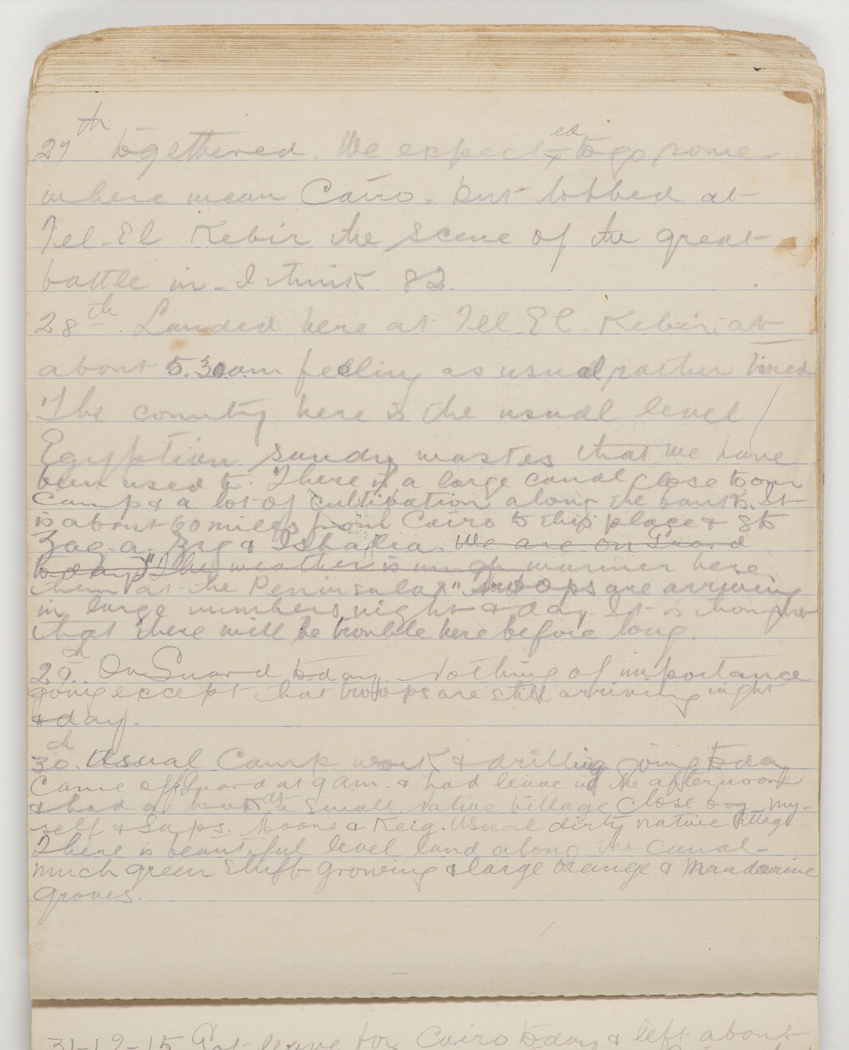 27th togethered. We expected to go some-
where mean Cairo. but lobbed at
Tel-El Kebir the scene of the great
battle in - I think 82.
28th. Landed here at Tel El. Kebir at
about 5.30am feeling as usual rather tired
The country here is the usual level
Egyptian sandy wastes that we have
been used to. There is a large canal close to our
Camp & a lot of cultivation along the banks. it
is about 60 miles from Cairo to this place & 86 to
Zag-a-Zig & Ishalia. We are on Guard
today. The weather is much warmer here
then at the Peninsular" Troops are arriving
in large numbers night & day. It is thought
that there will be trouble here before long.
29th. On Guard today. Nothing of importance
going except that troops are still arriving night
& day.
30th. Usual Camp work & drilling going today
Came off Guard at 9am. & had leave in the afternoon
& had a look at a small native village close by my-
self & Saps. Boone & Keig. Usual dirty native village
There is beautiful level land along the canal-
much green stuff growing & large orange & mandarine
groves.
31-12-15 Got leave for Cairo today & left about